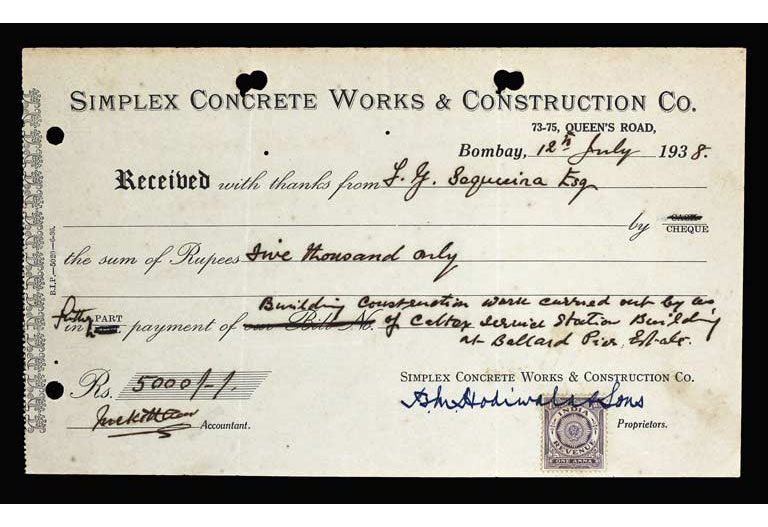 SIMPLEX CONCRETE WORKS & CONSTRUCTION CO.
73-75, QUEEN'S ROAD,
Bombay, 12th July 1938.
Received with thanks from L. Y. Sequeira Esq
by CASH
CHEQUE
the sum of Rupees Five thousand only
Building Construction work carried out by us
in PART payment of our Bill No. of Caltex Service Station Building
at Ballard Pier, Estate.
Rs. 5000/-/-
SIMPLEX CONCRETE WORKS & CONSTRUCTION CO.
Hodiwala & Sons
Accountant.
Proprietors.
INDIA
REVENUE
ONE ANNA